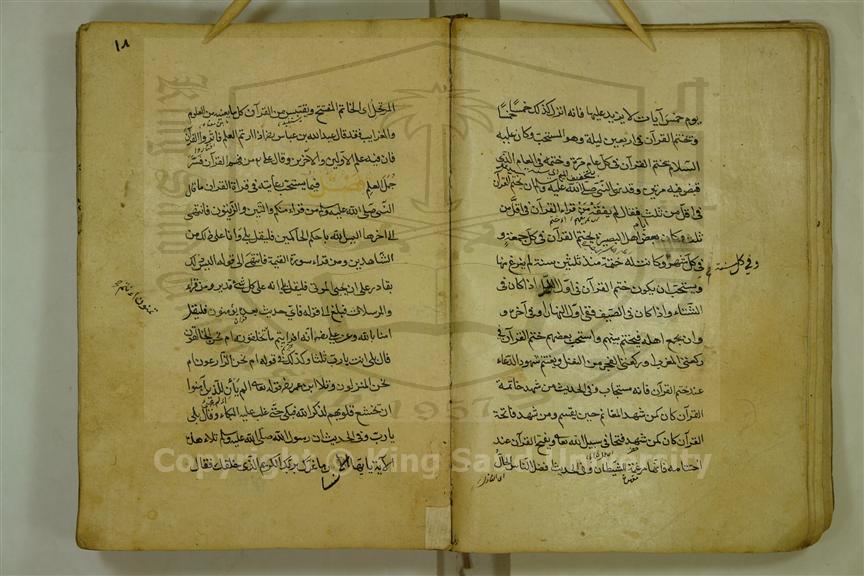 يوم خمس آيات لا يزيد عليها فانه انزل كذلك خمسا خمسا
وتختم القرآن في اربعين ليلة وهو المستحب وكان عليه
السلام يختم القرآن في كل عام مرة وختمه في العام الذي
قبض فيه مرتين وقد نهى النبي صلى الله عليه وسلم ان يختم القرآن
في اقل من ثلث فقال لم يفقه من قراء القرآن في اقل من
ثلث وكان بعض اهل البصيرة يختم القرآن في كل جمعة و
في كل شهر وكانت له ختمة منذ ثلثين سنة لم يفرغ منها
وفي كل سنة
ويستحب ان يكون ختم القرآن في اول الليل اذا كان في
الشتاء واذا كان في الصيف ففي اول النهار او في آخره و
وان يجمع اهله فيختم بينهم واستحب بعضهم ختم القرآن في
ركعتي المغرب او ركعتي الفجر من النفل ويغتنم شهود الدعاء
عند ختم القرآن فانه مستجاب وفي الحديث من شهد خاتمة
القرآن كان كمن شهد المغانم حين يقسم ومن شهد فاتحة
القرآن كان كمن شهد فتحا في سبيل الله تعالى ويفتح القرآن عند
اختتامه فانما مرغمة الشيطان وفي الحديث افضل الناس الحال
١٨
المرتحل اي الخاتم المفتتح ويقتبس من القرآن كل ما يعنيه من العلوم
والغرائب فقد قال عبد الله بن عباس رض اذا اردتم العلم فاثروا القرآن
فان فيه علم الاولين والآخرين وقال علي من فهم القرآن فسر
جمل العلم فصل فيما يستحب رعايته في قراءة القرآن ما قال
النبي صلى الله عليه وسلم من قراء منكم والتين والزيتون فانتهى
الى اخرها اليس الله باحكم الحاكمين فليقل بلى وانا على ذلك من
الشاهدين ومن قراء سورة القيمة فانتهى الى قوله اليس ذلك
بقادر على ان يحيي الموتى فليقل بلى انه على كل شيء قدير ومن قراء
والمرسلات فبلغ الى قوله فباي حديث بعده يؤمنون فليقل
امنا بالله وعن علي رضي انه قرأ افرايتم ما تخلقونه ام نحن الخالقون
تمنون اانتم
قال بلى انت يا رب ثلثا وكذلك في قوله ام نحن الزارعون ام
نحن المنزلون وتلا ابن عمر رض قوله تعالى الم يأن للذين آمنوا
ان تخشع قلوبهم لذكر الله فبكى حتى غلب عليه البكاء وقال بلى
يا رب وفي الحديث ان رسول الله صلى الله عليه وسلم تلا هذه
الآية يا ايها الانسان ما غرك بربك الكريم الذي خلقك فقال
Copyright © King Saud University
1957